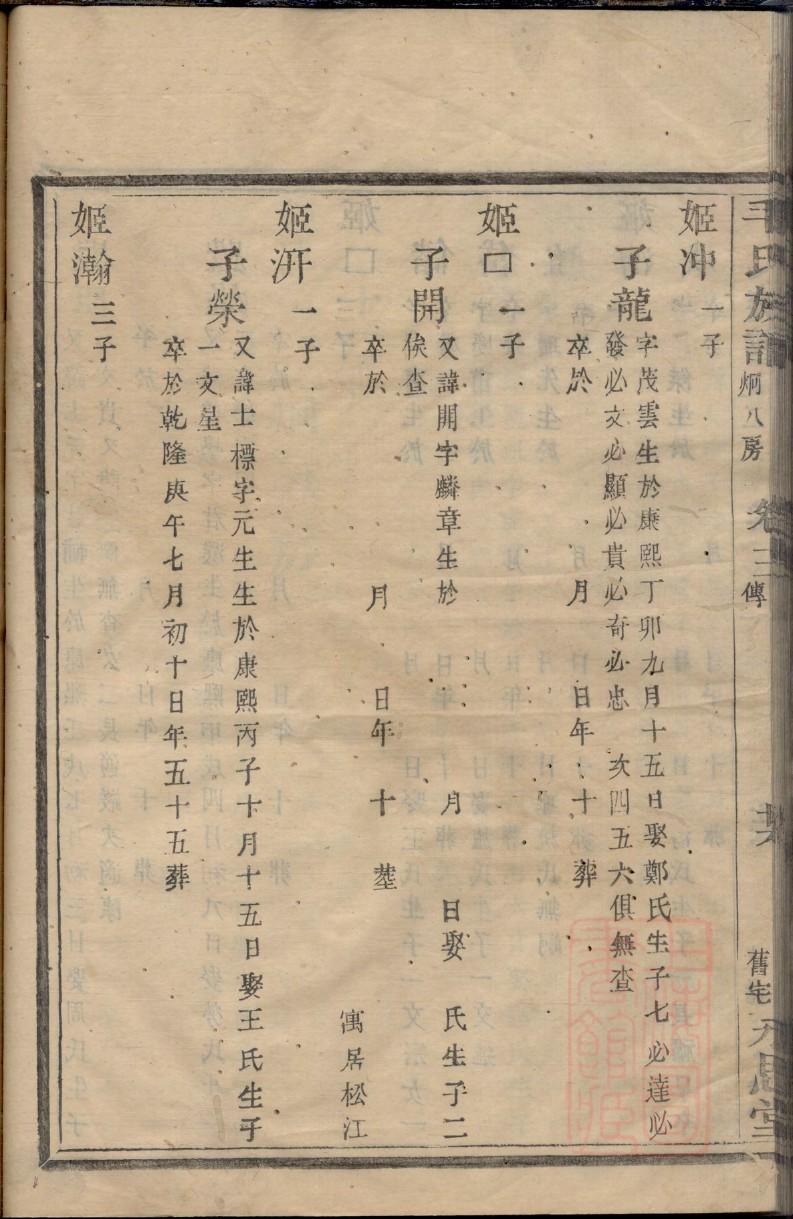 氏族譜
炯八房
卷三傳
舊宅
姬冲一子
子龍
字茂雲生於康熙丁卯九月十五日娶鄭氏生子七必達必
發必文必顯必貴必奇必忠 次四五六俱無查
卒於 月 日年 十 葬
姬口一子
子開
又諱開字麟章生於 月 日娶 氏生子二
俟查
卒於 月 日年 十 塟
寓居松江
姬汧一子
子榮
又諱士標字元生生於康熙丙子十月十五日娶王氏生子
一文星
卒於乾隆庚午七月初十日年五十五葬
姬瀚三子